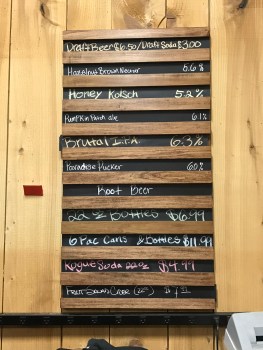 Draft Beer $6.50/Draft Soda $3.00
Hazelnut Brown Nectar 5.6%
Honey Kolsch 5.2%
Pumpkin Patch ale 6.1%
Brutal I.P.A. 6.3%
Paradise Pucker 6.0%
Root Beer
22oz Bottles $6.99
6 Pac Cans & Bottles $11.99
Rogue Soda 22oz $4.99